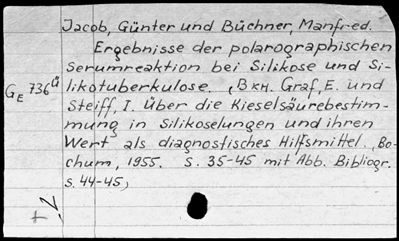 Jacob, Günter und Büchner, Manfred.
Ergebnisse der polarographischen
Serumreaktion bei Silikose und Si-
likotuberkulose. (Вкн. Graf, E. und
GE 736ü
Steiff, I. Über die Kieselsäurebestim-
mung in Silikoselungen und ihren
Wert als diagnostisches Hilfsmittel. Bo-
chum, 1955. S. 35-45 mit Abb. Bibliogr.
S. 44-45)